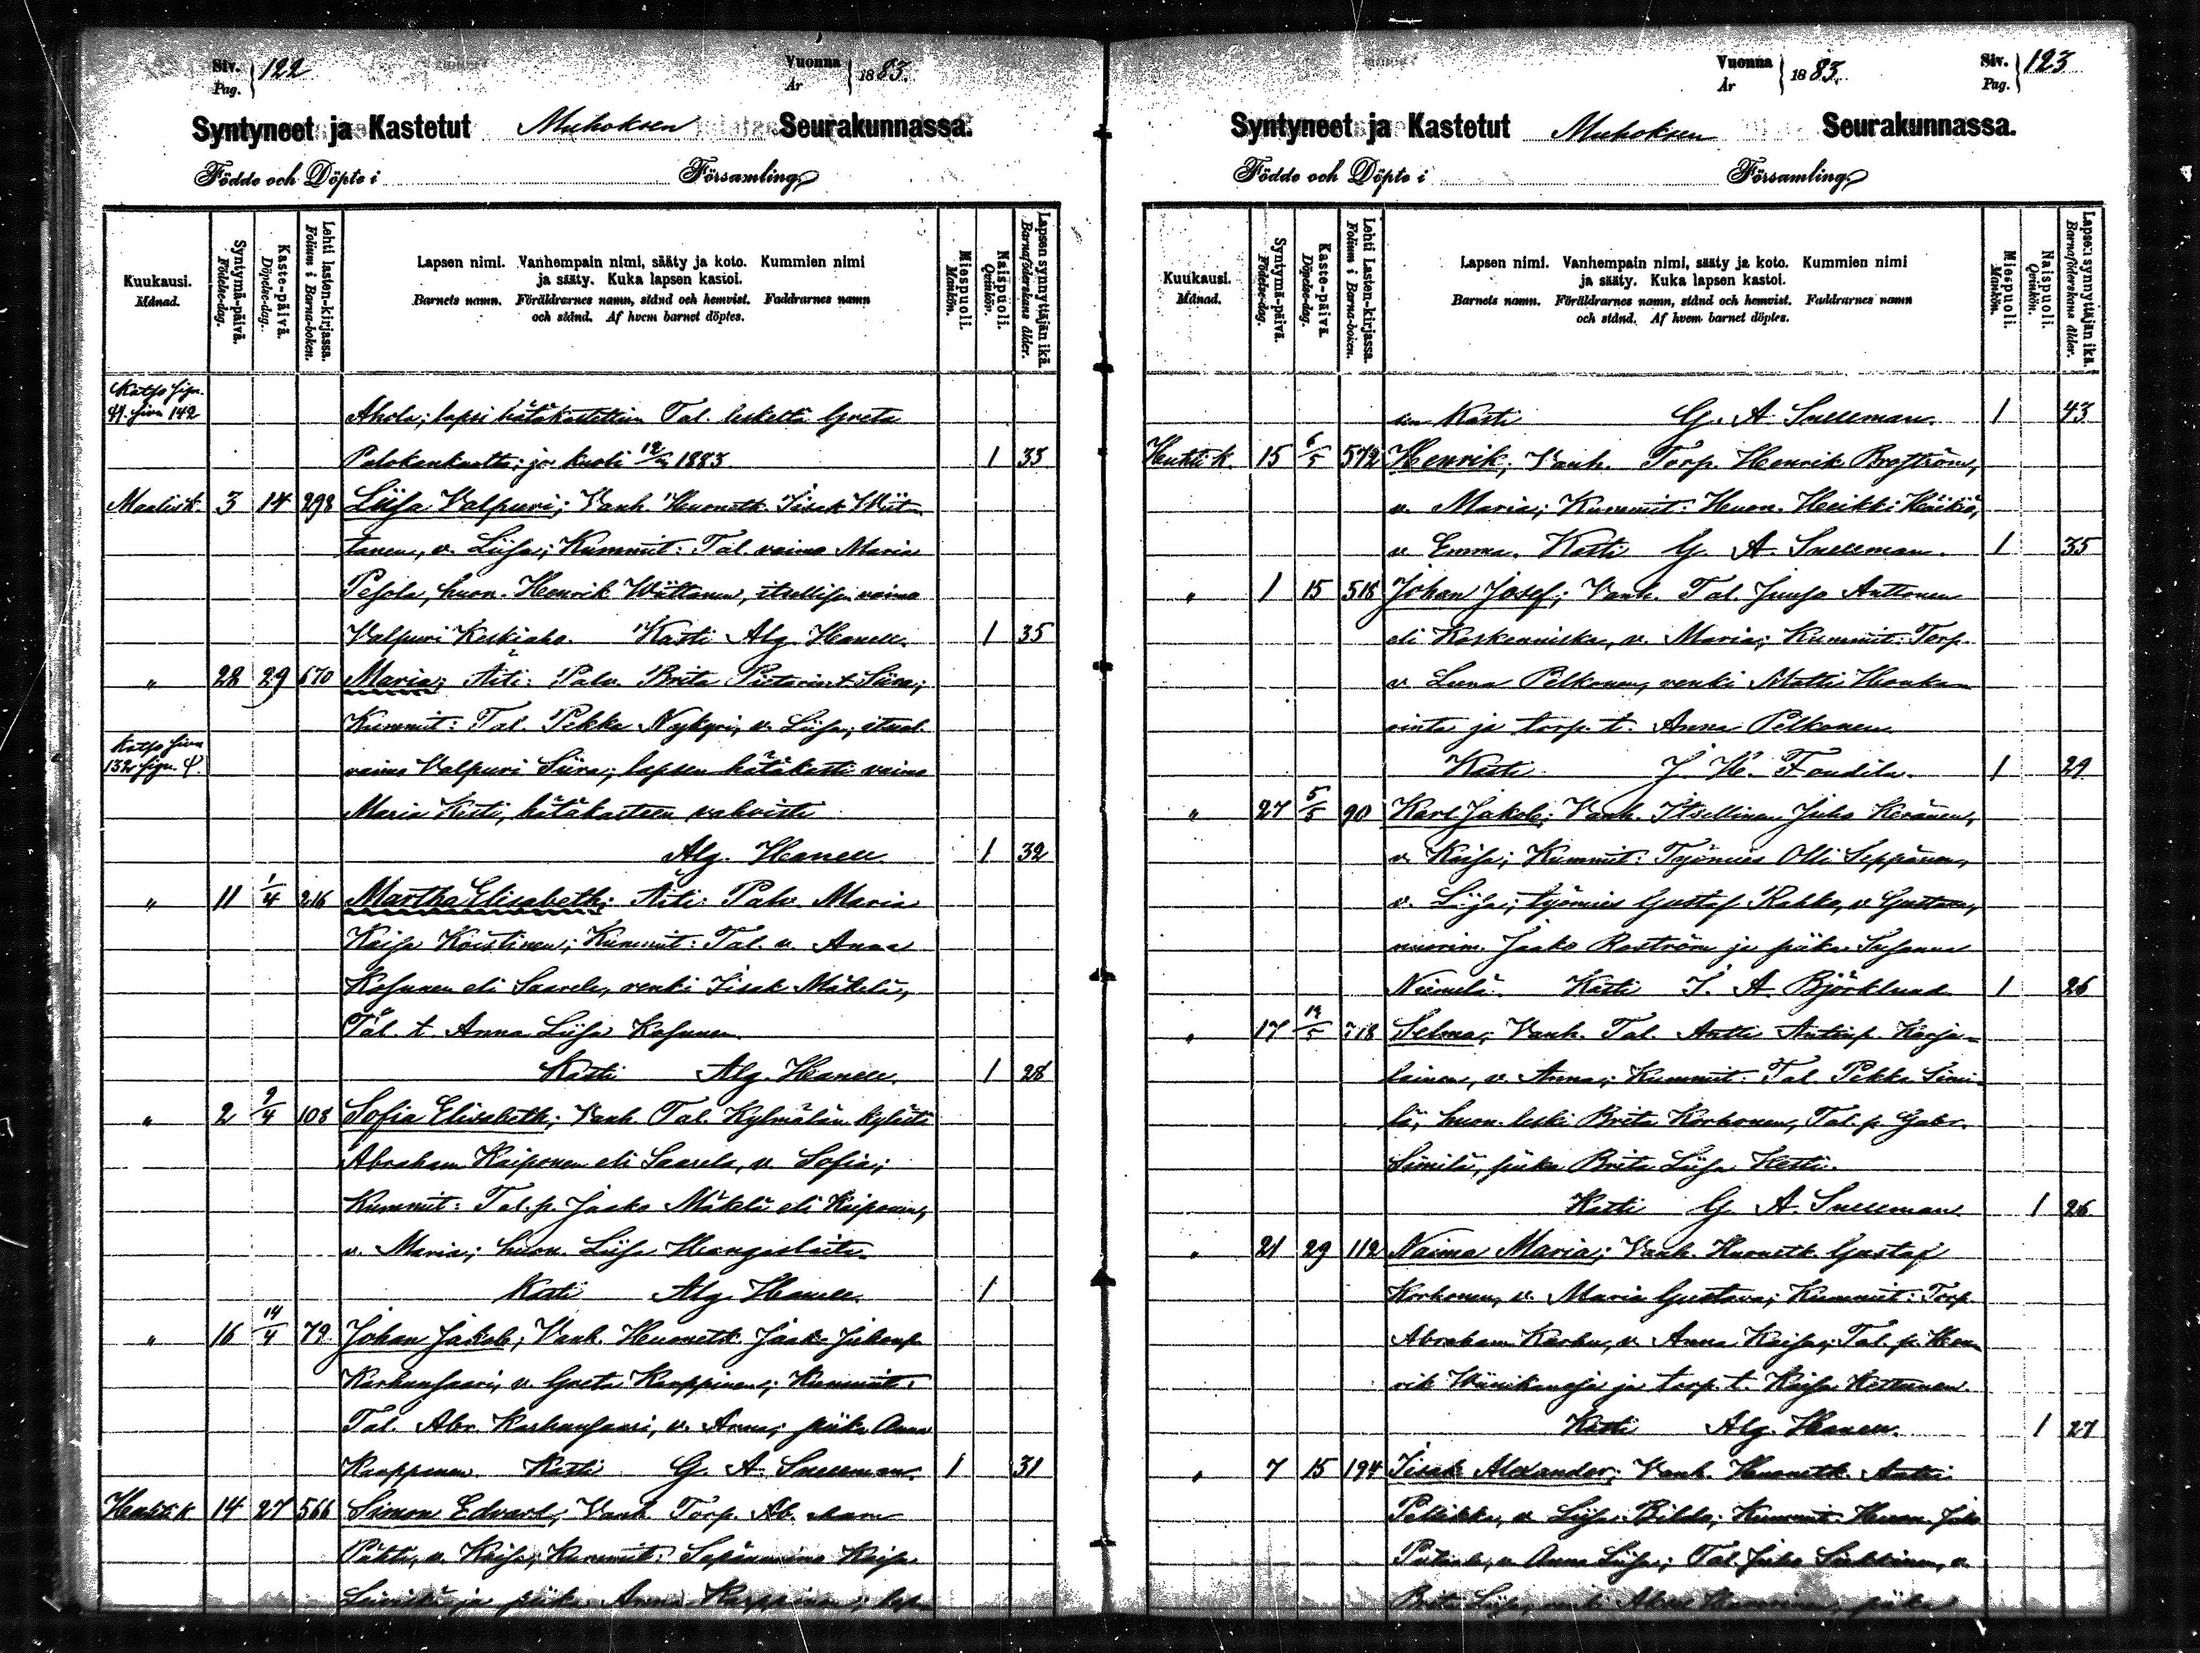 Siv. Pag. 122
Vuonna År 1883.
Syntyneet ja Kastetut Muhoksen Seurakunnassa.
Födde och Döpte i Församling
Kuukausi. Månad.
Syntymä-päivä. Födelse-dag.
Kaste-päivä. Döpelse-dag.
Lehti lasten-kirjassa. Folium i Barna-boken.
Lapsen nimi. Vanhempain nimi, sääty ja koto. Kummien nimi
ja sääty. Kuka lapsen kastoi.
Barnets namn. Föräldrarnes namn, stånd och hemvist. Faddrarnes namn
och stånd. Af hvem barnet döptes.
Miespuoli. Mankön.
Naispuoli. Qvinkön.
Lapsen synnyttäjän ikä. Barnaföderskans ålder.
Katso
siva 142
Ahola; lapsi hätäkastettiin Tal. leskeltä Greta
Palokankaalta; jo kuoli 1883. 1 33
Maalisk. 3 14 298 Liisa Valpuri; Vanh. Huonetk. Iisak Wiit-
tanen, v. Liisa; Kummit: Tal. vaimo Maria
Pesola, huon. Henrik Wiittanen, itsellisen vaimo
Valpuri Keskiaho. Kasti Alg. Hanell. 1 35
" 28 29 670 Maria; Äiti: Palv. Brita Pietarint. Siira;
Kummit: Tal. Pekka Nykyri, v. Liisa; itsel.
Katso siva
132 sign.
vaimo Valpuri Siira; lapsen hätäkasti vaimo
Maria Kesti, hätäkasteen vahvisti
Alg. Hanell 1 32
" 11 1/4 216 Martha Elisabeth; Äiti: Palv. Maria
Kaisa Koistinen; Kummit: Tal. v. Anna
Kosunen eli Saarela, renki Iisak Mäkelä,
Tal. t. Anna Liisa Kosunen.
Kasti Alg. Hanell. 1 28
" 2 9/4 108 Sofia Elisabeth; Vanh. Tal. Kylmälän kylästä
Abraham Kaiponen eli Saarela, v. Sofia;
Kummit: Tal. p. Jaako Mäkelä eli Kaiponen,
v. Maria; huon. Liisa Hangaslaita.
Kasti Alg. Hanell. 1
" 16 14/4 79 Johan Jakob; Vanh. Huonetk. Jaako Juhanp.
Karhunsaari, v. Greta Karppinen; Kummit:
Tal. Abr. Karhunsaari, v. Anna; piika Anna
Karppinen. Kasti G. A. Snellman. 1 31
Huhtik 14 27 566 Simon Edvard; Vanh. Torp. Ab. 
v. Kaisa; Kummit: Kaisa
ja piika Anna Karppinen; lap-
Vuonna År 1883.
Siv. Pag. 123
Syntyneet ja Kastetut Muhoksen Seurakunnassa.
Födde och Döpte i Församling
Kuukausi. Månad.
Syntymä-päivä. Födelse-dag.
Kaste-päivä. Döpelse-dag.
Lehti Lasten-kirjassa. Folium i Barna-boken.
Lapsen nimi. Vanhempain nimi, sääty ja koto. Kummien nimi
ja sääty. Kuka lapsen kastoi.
Barnets namn. Föräldrarnes namn, stånd och hemvist. Faddrarnes namn
och stånd. Af hvem barnet döptes.
Miespuoli. Mankön.
Naispuoli. Qvinkön.
Lapsen synnyttäjän ikä. Barnaföderskans ålder.
sen Kasti G. A. Snellman. 1 43
Huhti k. 15 6/5 572 Henrik; Vanh. Torp. Henrik Broström,
v. Maria; Kummit: Huon. Heikki
v. Emma. Kasti G. A. Snellman. 1 35
" 1 15 518 Johan Josef; Vanh. Tal. Juuso Anttonen
eli Koskenniska, v. Maria; Kummit: Torp.
v. Leena Pelkonen, renki Matti Honka-
rinta ja torp. t. Anna Pelkonen.
Kasti J. W. Fondila. 1 29
" 27 5/5 90 Karl Jakob; Vanh. Itsellinen Juho Keränen,
v. Kaisa; Kummit: Työmies Olli Seppänen,
v. Liisa; työmies Gustaf Rahko, v. Gustava,
Jaako Raström ja piika Susanna
Niemelä. Kasti J. A. Björklund 1 26
" 17 14/5 718 Selma; Vanh. Tal. Antti Antinp. Karja-
lainen, v. Anna; Kummit: Tal. Pekka Simi-
lä; huon. leski Brita Korhonen, Tal. p. Gabr.
Similä, piika Brita Liisa Kesti.
Kasti G. A. Snellman. 1 26
" 21 29 112 Naima Maria; Vanh. Huonetk. Gustaf
Korhonen, v. Maria Gustava; Kummit: Torp.
Abraham Karhu, v. Anna Kaisa; Tal. p. Hen-
rik Wiinikanoja ja torp. t. Kaisa Kettunen.
Kasti Alg. Hanell. 1 27
" 7 15 194 Iisak Alexander; Vanh. Huonetk. Antti
Pellikka, v. Liisa Kummit: Huon.
v. Anna Liisa; Tal. Juho v.
Brita Liisa, piika